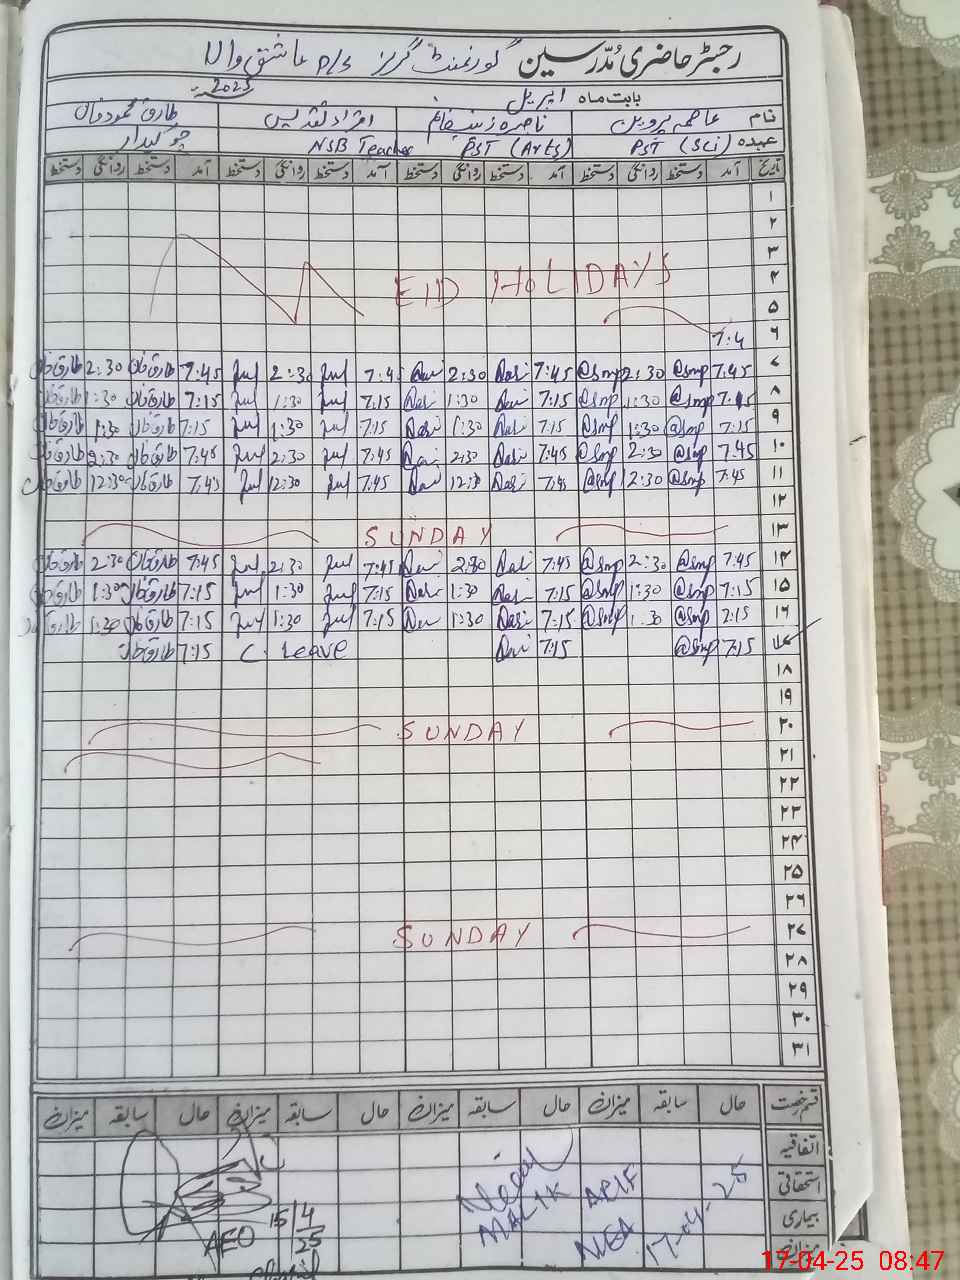 رجسٹر حاضری مُدرسین گورنمنٹ گرلز P/S عاشق والا
بابت ماہ اپریل 2025
نام عاصمہ پروین ناصرہ زینب خانم اقراء تقدیس طارق محمود خان
عہدہ PST (Sci) PST (Arts) NSB Teacher چوکیدار
تاریخ آمد دستخط روانگی دستخط آمد دستخط روانگی دستخط آمد دستخط روانگی دستخط آمد دستخط روانگی دستخط
۱
۲
۳
۴ EID HOLIDAYS
۵
۶ 7:4
۷ 7:45 @smp 2:30 @smp 7:45 2:30 7:45 2:30 7:45 طارق خان 2:30 طارق خان
۸ 7:15 @smp 1:30 @smp 7:15 1:30 7:15 1:30 7:15 طارق خان 1:30 طارق خان
۹ 7:15 @smp 1:30 @smp 7:15 1:30 7:15 1:30 7:15 طارق خان 1:30 طارق خان
۱۰ 7:45 @smp 2:30 @smp 7:45 2:30 7:45 2:30 7:45 طارق خان 2:30 طارق خان
۱۱ 7:45 @smp 12:30 @smp 7:45 12:30 7:45 12:30 7:45 طارق خان 12:30 طارق خان
۱۲
۱۳ SUNDAY
۱۴ 7:45 @smp 2:30 @smp 7:45 2:30 7:45 2:30 7:45 طارق خان 2:30 طارق خان
۱۵ 7:15 @smp 1:30 @smp 7:15 1:30 7:15 1:30 7:15 طارق خان 1:30 طارق خان
۱۶ 7:15 @smp 1:30 @smp 7:15 1:30 7:15 1:30 7:15 طارق خان 1:30 طارق خان
۱۷ 7:15 @smp 7:15 C. Leave 7:15 طارق خان
۱۸
۱۹
۲۰ SUNDAY
۲۱
۲۲
۲۳
۲۴
۲۵
۲۶
۲۷ SUNDAY
۲۸
۲۹
۳۰
۳۱
قسم رخصت حال سابقہ میزان حال سابقہ میزان حال سابقہ میزان حال سابقہ میزان
اتفاقیہ
استحقاقی
بیماری
میزان
MALIK ARIF
17-04-25
AEO 15/4/25
17-04-25 08:47